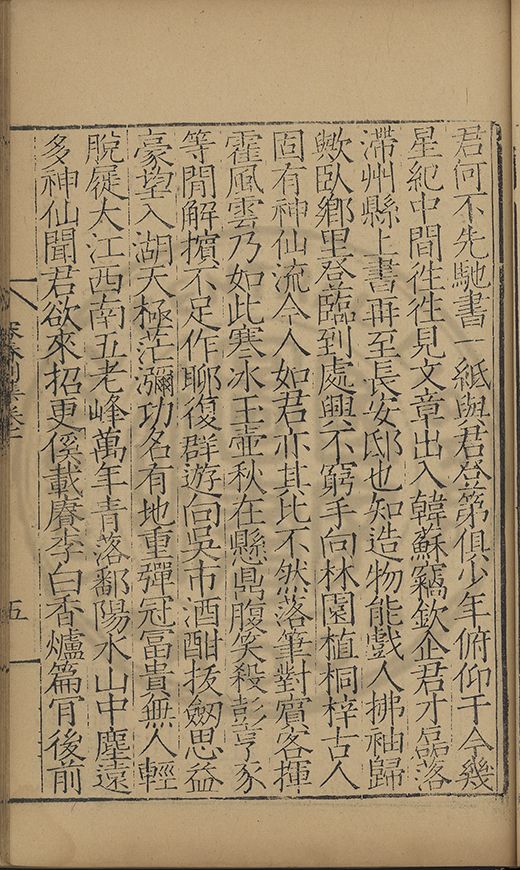 君何不先馳書一紙與君登第俱少年俯仰于今幾
星紀中間徃徃見文章出入韓蘇窺欽企君才磊落
滯州縣上書再至長安邸也知造物能戲人拂袖歸
歟臥鄉里登臨到處興不窮手向林園植桐梓古人
固有神仙流今人如君亦其比不然落筆對賓客揮
霍風雲乃如此寒冰玉壺秋在懸鼎腹笑殺彭亨豕
等閒解擯不足作聊復群遊向吳市酒酣拔劒思益
豪望入湖天極茫瀰功名有地重彈冠富貴無人輕
脫屣大江西南五老峰萬年青落鄱陽水山中塵遠
多神仙聞君欲來招更俟載賡李白香爐篇肎後前
五